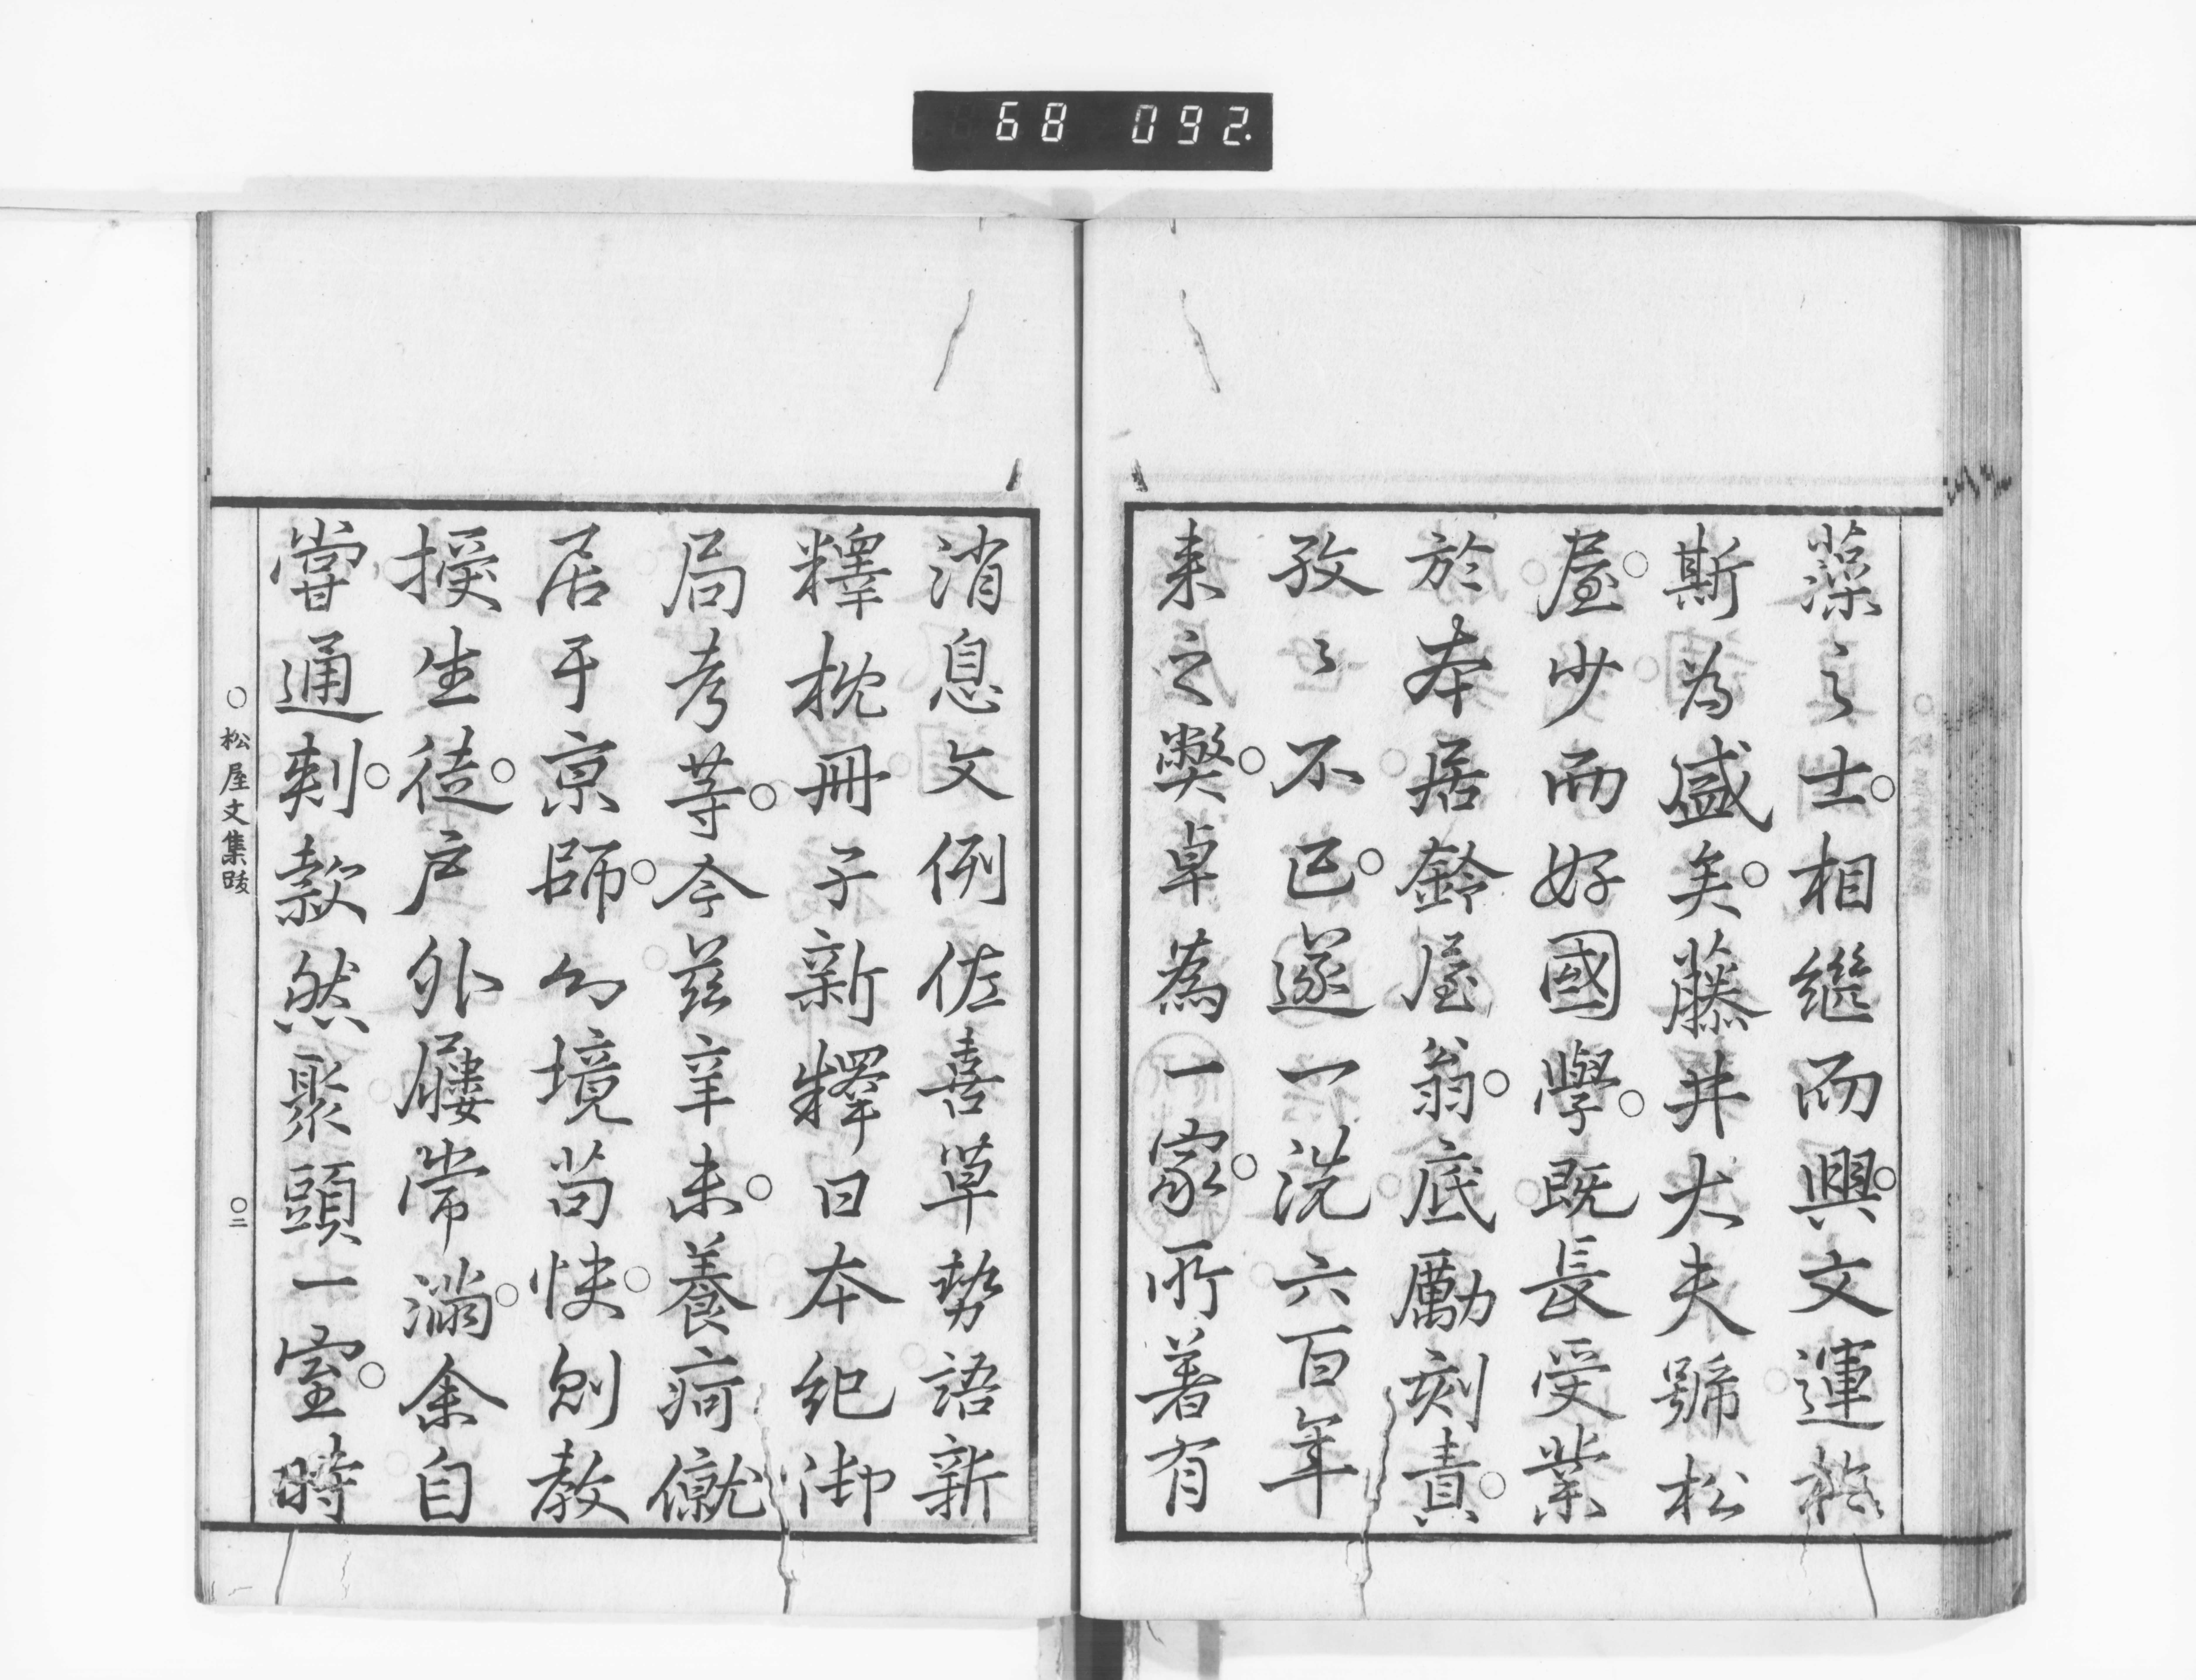 68 092.
藻之士。相繼而興。文運於
斯為盛矣。藤井大夫號松
屋。少而好國學。既長受業
於本居鈴屋翁。底勵刻責。
孜〻不已。遂一洗六百年
来之弊。卓為一家。所著有
消息文例佐喜草勢語新
釋枕冊子新釋日本紀御
局考等。今茲辛未。養痾僦
居于京師。心境苟快。則教
授生徒。戶外屨常滿。余自
嘗通刺。款然聚頭一室。時
〇松屋文集跋
〇二